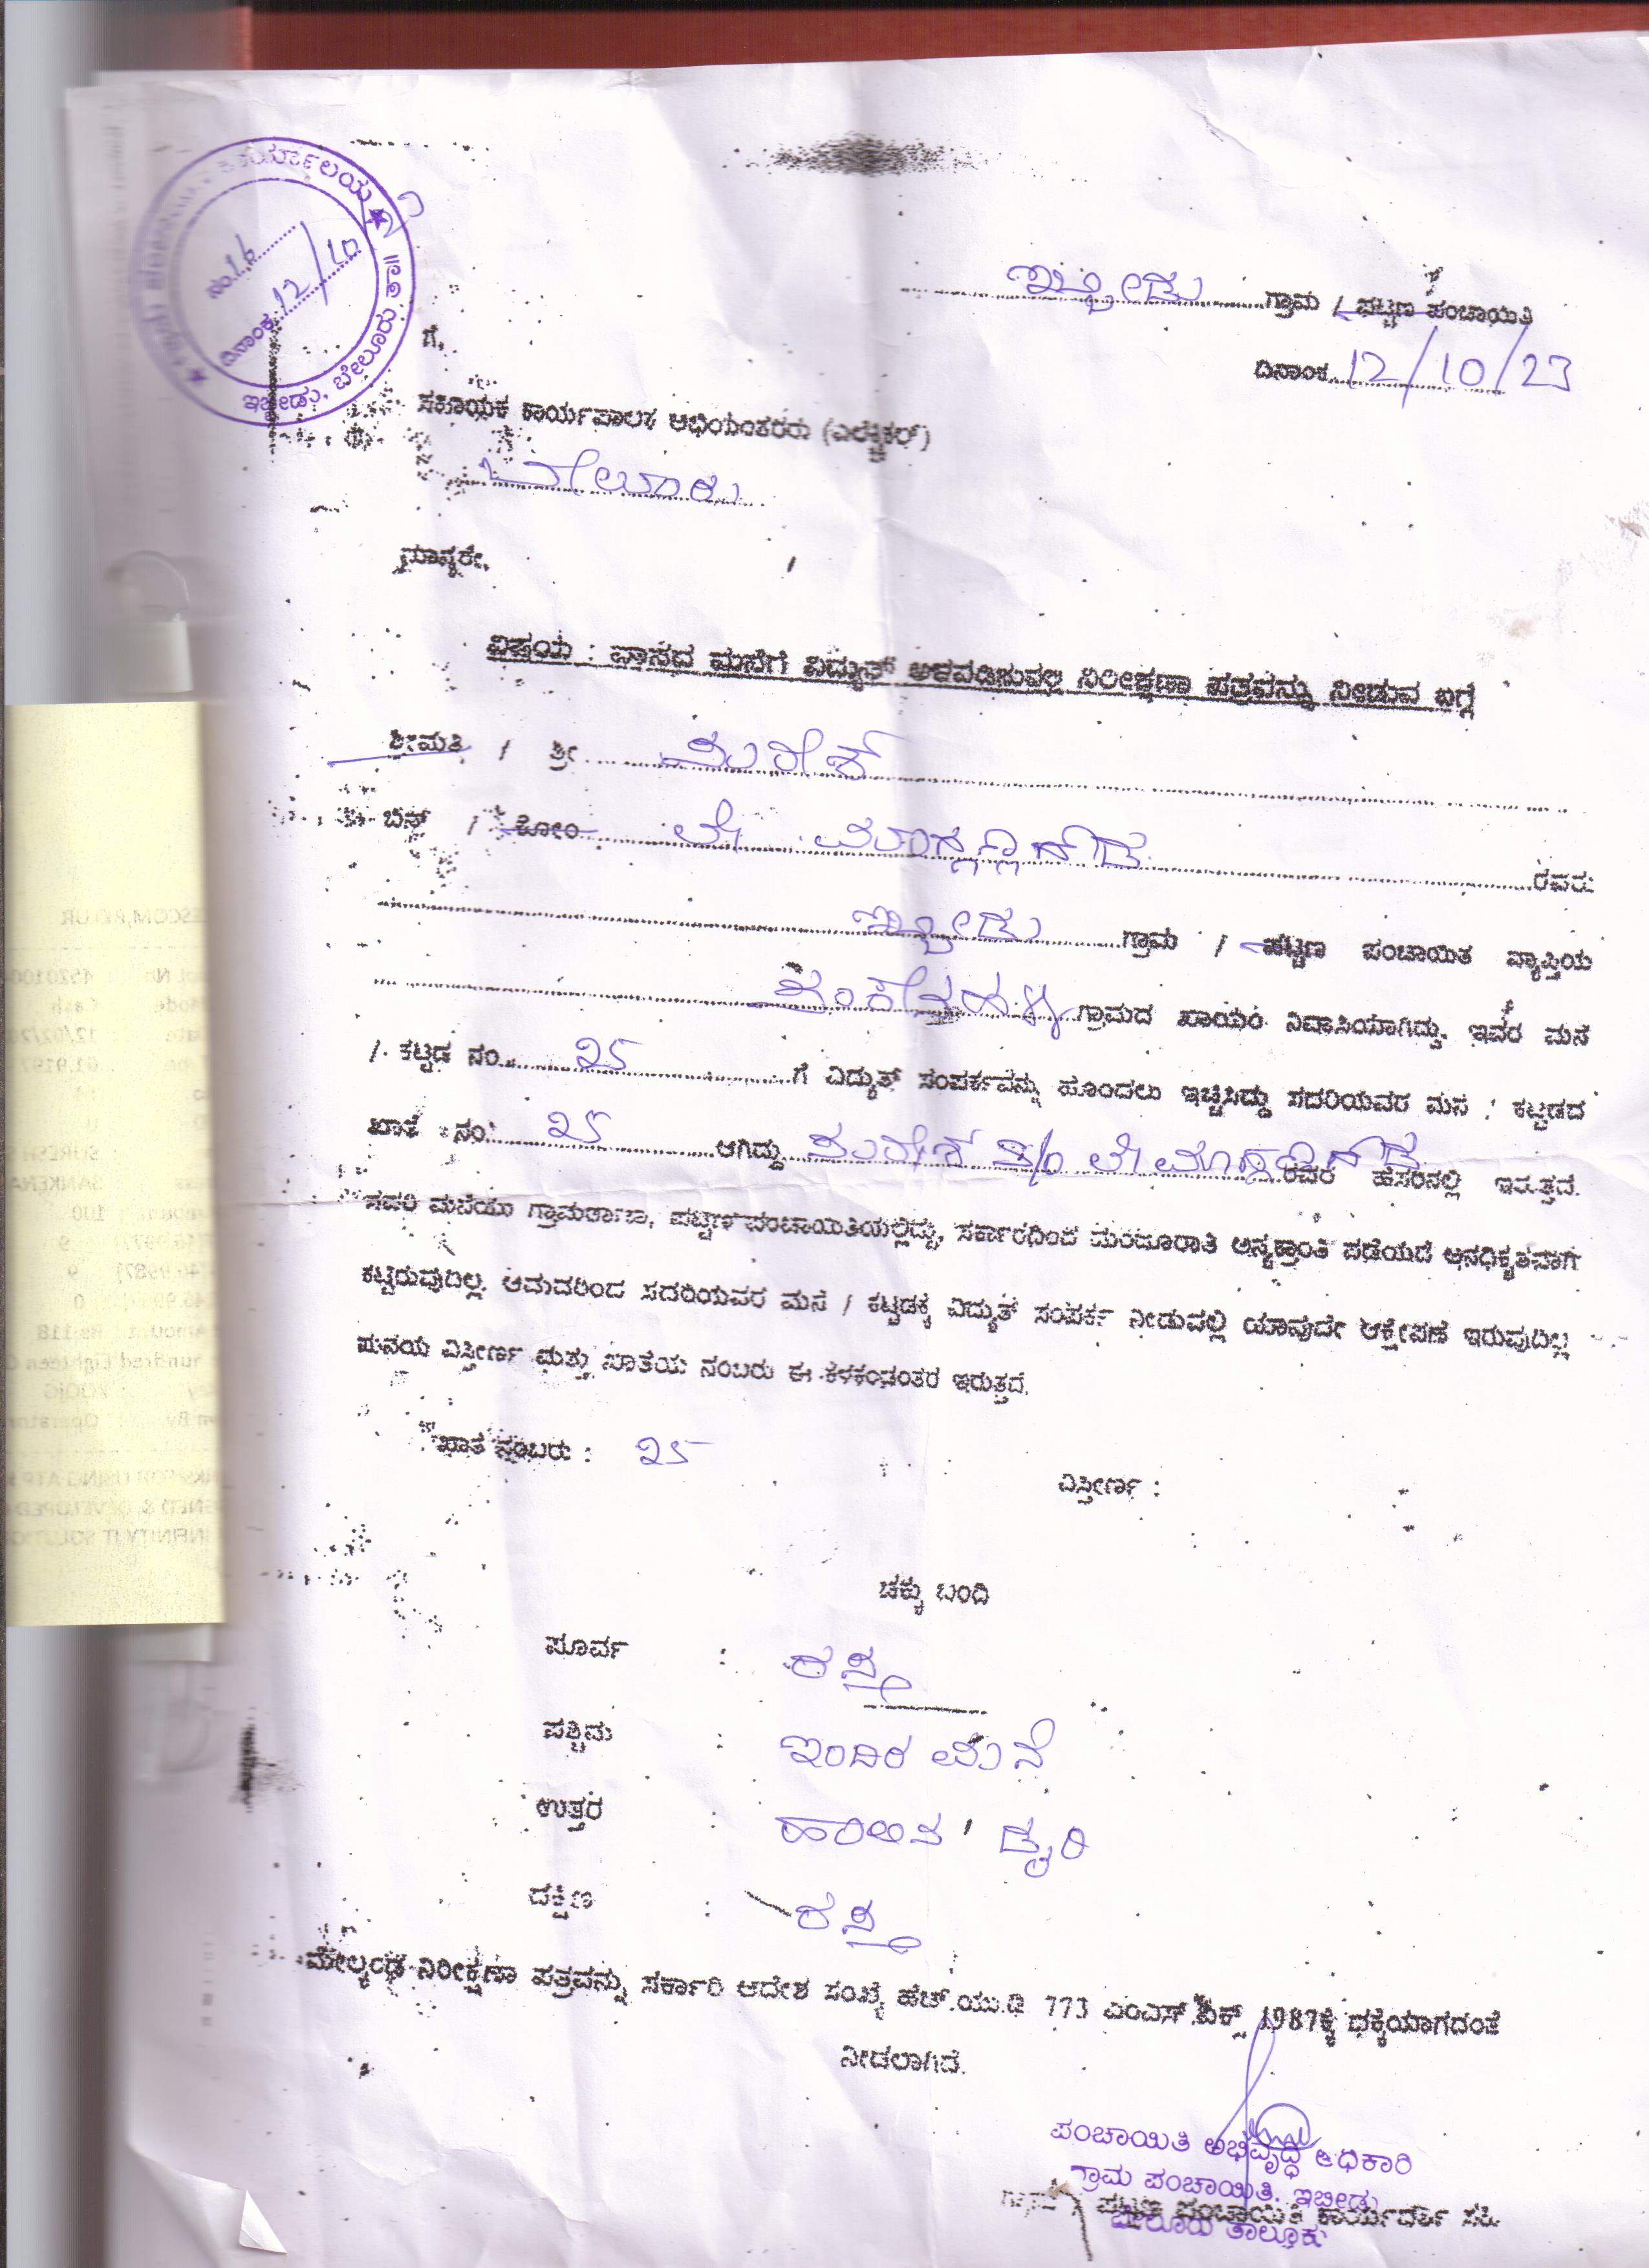 ಕಾರ್ಯಾಲಯ ★
ನಂ. 16
ದಿನಾಂಕ 12/10
ಇಬ್ಬೀಡು, ಬೇಲೂರು ತಾ॥
ಇಬ್ಬೀಡು ಗ್ರಾಮ / ಪಟ್ಟಣ ಪಂಚಾಯಿತಿ
ದಿನಾಂಕ 12/10/23
ಗೆ,
ಸಹಾಯಕ ಕಾರ್ಯಪಾಲಕ ಅಭಿಯಂತರರು (ಎಲೆಕ್ಟ್ರಿಕಲ್)
ಬೇಲೂರು
ಮಾನ್ಯರೇ,
ವಿಷಯ : ವಾಸದ ಮನೆಗೆ ವಿದ್ಯುತ್ ಅಳವಡಿಸುವಲ್ಲಿ ನಿರೀಕ್ಷಣಾ ಪತ್ರವನ್ನು ನೀಡುವ ಬಗ್ಗೆ
ಶ್ರೀಮತಿ / ಶ್ರೀ ಸುರೇಶ್
ಬಿನ್ / ಕೋಂ ಲೇ ರವರು
ಇಬ್ಬೀಡು ಗ್ರಾಮ / ಪಟ್ಟಣ ಪಂಚಾಯಿತ ವ್ಯಾಪ್ತಿಯ
ಗ್ರಾಮದ ಖಾಯಂ ನಿವಾಸಿಯಾಗಿದ್ದು, ಇವರ ಮನೆ
/ ಕಟ್ಟಡ ನಂ. ೨೫ ಗೆ ವಿದ್ಯುತ್ ಸಂಪರ್ಕವನ್ನು ಹೊಂದಲು ಇಚ್ಚಿಸಿದ್ದು ಸದರಿಯವರ ಮನೆ / ಕಟ್ಟಡದ
ಖಾತೆ ನಂ ೨೫ ಆಗಿದ್ದು ಸುರೇಶ S/o ಲೇ ರವರ ಹೆಸರಿನಲ್ಲಿ ಇರುತ್ತದೆ.
ಸದರಿ ಮನೆಯು ಗ್ರಾಮಠಾಣಾ, ಪಟ್ಟಣ ಪಂಚಾಯಿತಿಯಲ್ಲಿದ್ದು, ಸರ್ಕಾರದಿಂದ ಮಂಜೂರಾತಿ ಅನ್ಯಕ್ರಾಂತಿ ಪಡೆಯದೆ ಅನಧಿಕೃತವಾಗಿ
ಕಟ್ಟಿರುವುದಿಲ್ಲ. ಆದುದರಿಂದ ಸದರಿಯವರ ಮನೆ / ಕಟ್ಟಡಕ್ಕೆ ವಿದ್ಯುತ್ ಸಂಪರ್ಕ ನೀಡುವಲ್ಲಿ ಯಾವುದೇ ಆಕ್ಷೇಪಣೆ ಇರುವುದಿಲ್ಲ
ಮನೆಯ ವಿಸ್ತೀರ್ಣ ಮತ್ತು ಖಾತೆಯ ನಂಬರು ಈ ಕೆಳಕಂಡಂತರ ಇರುತ್ತದೆ.
ಖಾತೆ ನಂಬರು : ೨೫
ವಿಸ್ತೀರ್ಣ :
ಚಕ್ಕು ಬಂದಿ
ಪೂರ್ವ : ರಸ್ತೆ
ಪಶ್ಚಿಮ : ಇಂದಿರ ಮನೆ
ಉತ್ತರ : ಹಾಲಿನ ಡೈರಿ
ದಕ್ಷಿಣ : ರಸ್ತೆ
ಮೇಲ್ಕಂಡ ನಿರೀಕ್ಷಣಾ ಪತ್ರವನ್ನು ಸರ್ಕಾರಿ ಆದೇಶ ಸಂಖ್ಯೆ ಹೆಚ್.ಯು.ಡಿ 773 ಎಂಎನ್.ಎಕ್ಸ್ 1987ಕ್ಕೆ ಧಕ್ಕೆಯಾಗದಂತೆ
ನೀಡಲಾಗಿದೆ.
ಪಂಚಾಯಿತಿ ಅಭಿವೃದ್ಧಿ ಅಧಿಕಾರಿ
ಗ್ರಾಮ ಪಂಚಾಯಿತಿ, ಇಬ್ಬೀಡು
ಗ್ರಾಮ / ಪಟ್ಟಣ ಪಂಚಾಯಿತಿ ಕಾರ್ಯದರ್ಶಿ ಸಹಿ
ಬೇಲೂರು ತಾಲ್ಲೂಕು